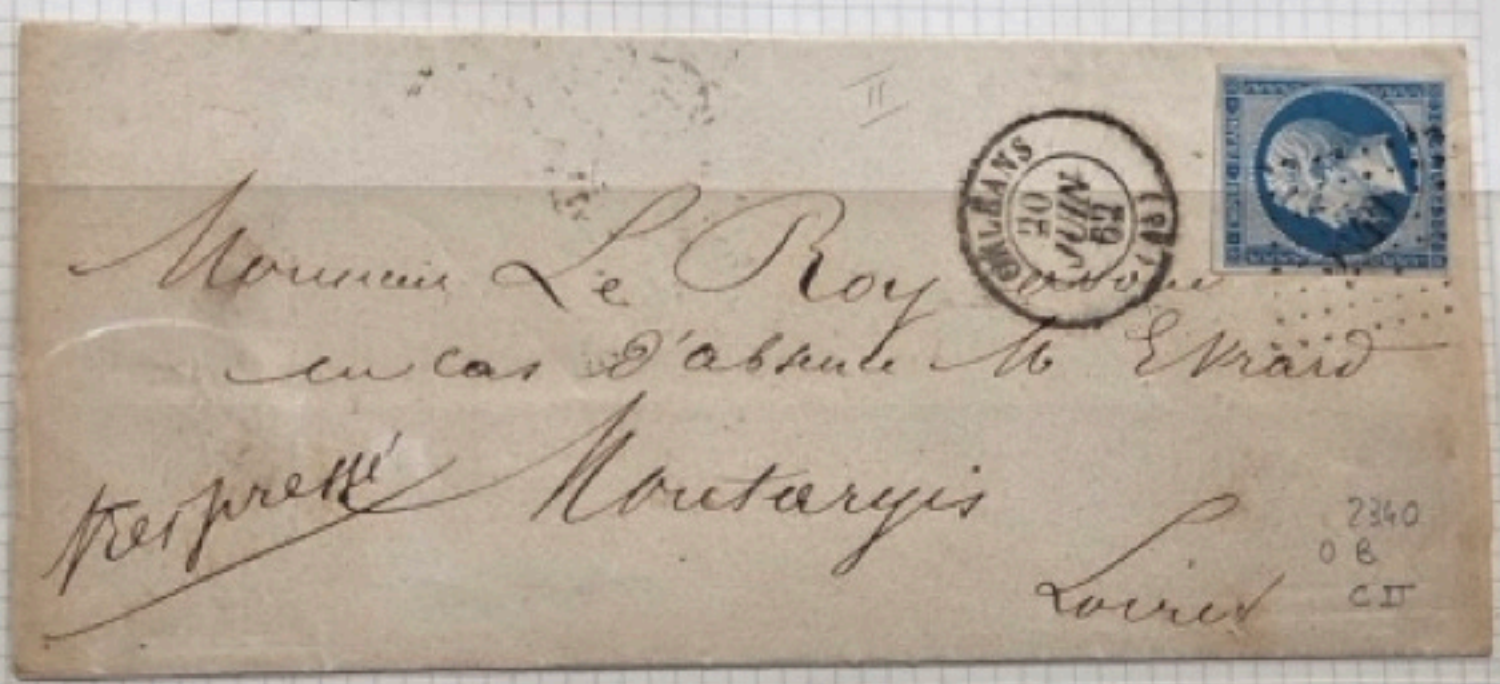 II
ORLÉANS
20
JUIN
62
Monsieur Le Roy
en cas d'absence Mr Evrard
Très pressé
Montargis
Loiret
2340
OB
CII